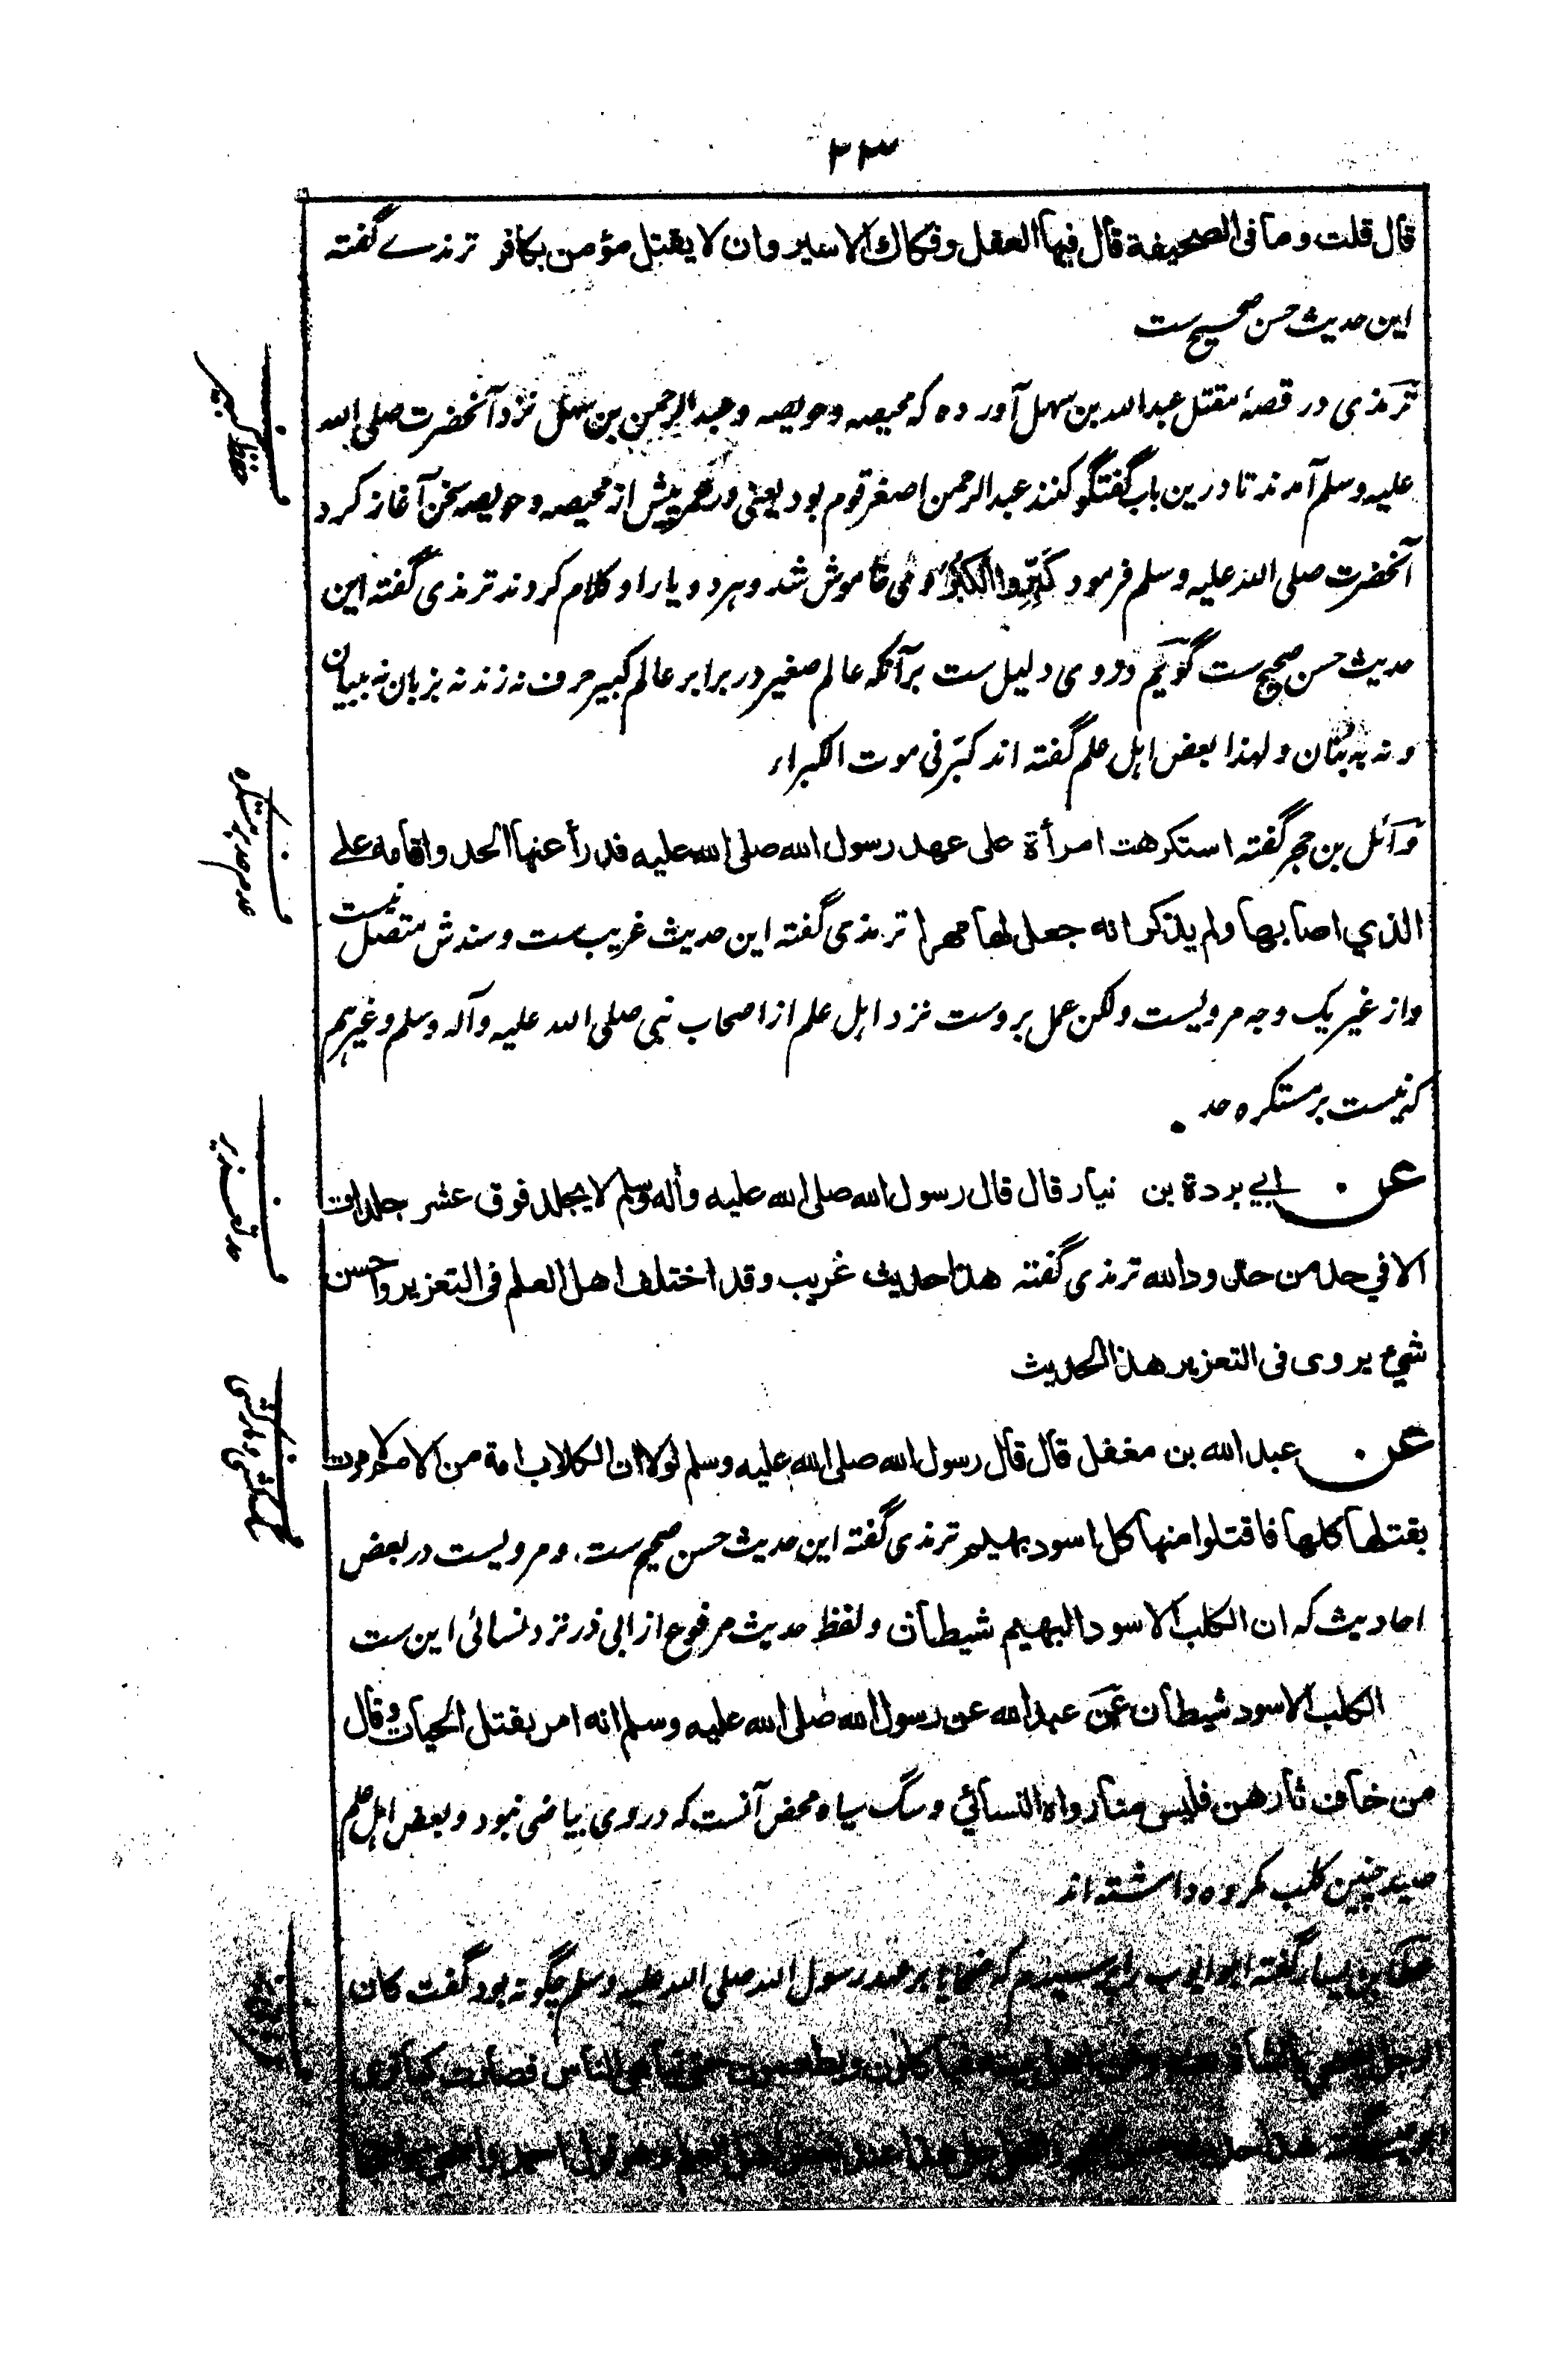 ۳۳
قال قلت وما فی الصحیفة قال فیها العقل وفکاک الاسیر وان لا یقتل مؤمن بکافر ترمذے گفته
این حدیث حسن صحیح ست
ترمذی در قصۂ مقتل عبدالله بن سهل آورده که محیصه وحویصه وعبدالرحمن بن سهل نزد آنحضرت صلی الله
علیه وسلم آمدند تا درین باب گفتگو کنند عبدالرحمن اصغر قوم بود یعنی در عمر پیش از محیصه وحویصه سخن آغاز کرد
آنحضرت صلی الله علیه وسلم فرمود کَبِّروا الکُبرَ وی خاموش شد وهر دو یارا و کلام کردند ترمذی گفته این
حدیث حسن صحیح ست گویم در وی دلیل ست برآنکه عالم صغیر در برابر عالم کبیر حرف نه زند نه بزبان نه ببیان
ونه به بنان ولهذا بعض اهل علم گفته اند کبّرنی موت الکبراء
وائل بن حجر گفته استکرهت امرأة علی عهد رسول الله صلی الله علیه فدرأ عنها الحد واقامه علے
الذي اصابها ولم یذکر انه جعل لها مهرا ترمذی گفته این حدیث غریب ست وسندش متصل نیست
واز غیر یک وجه مرویست ولکن عمل بروست نزد اهل علم از اصحاب نبی صلی الله علیه وآله وسلم وغیرهم
که نیست بر مستکره حد
عن ابي بردة بن نیار قال قال رسول الله صلی الله علیه وأله وسلم لا یجلد فوق عشر جلدات
الا في حد من حدود الله ترمذی گفته هذا حدیث غریب وقد اختلف اهل العلم فی التعزیر واحسن
شيء یروی فی التعزیر هذا الحدیث
عن عبد الله بن مغفل قال قال رسول الله صلی الله علیه وسلم لولا ان الکلاب امة من الامم لامرت
بقتلها کلها فاقتلوا منها کل اسود بهیم ترمذی گفته این حدیث حسن صحیح ست، ومرویست در بعض
احادیث که ان الکلب الاسود البهیم شیطان ولفظ حدیث مرفوع از ابی ذر نزد نسائی این ست
الکلب الاسود شیطان عَن عبد الله عن رسول الله صلی الله علیه وسلم انه امر بقتل الحیات وقال
من خاف ثارهن فلیس منا رواه النسائي وسگ سیاه محض آنست که در وی بیاضی نبود وبعض اهل علم
صید چنین کلب مکروه داشته اند
عطا بن یسار گفته ابو ایوب را پرسیدم که ضحایا بر عهد رسول الله صلی الله علیه وسلم چگونه بود گفت کان
الرجل یضحي بالشاة عنه وعن اهل بیته فیاکلون ویطعمون حتی تباهی الناس فصارت کما تری
حفظ کبیر
عدم حد بر مستکره
حد تعزیر